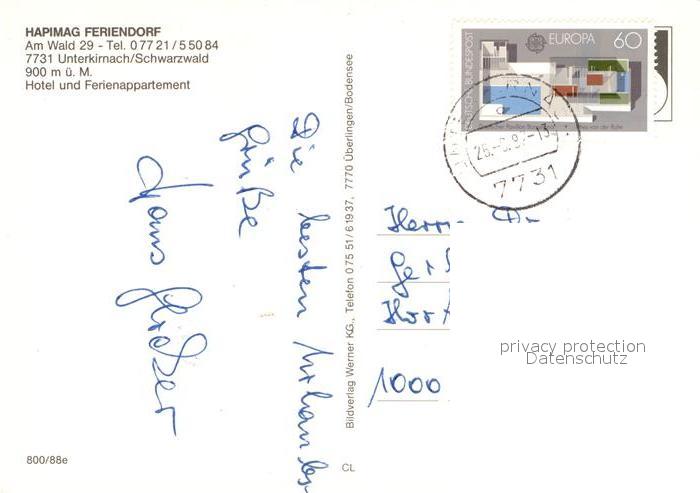 HAPIMAG FERIENDORF
Am Wald 29 - Tel. 0 77 21 / 5 50 84
7731 Unterkirnach/Schwarzwald
900 m ü. M.
Hotel und Ferienappartement
Die besten Urlaubs-
grüße
Hans
800/88e
Bildverlag Werner KG., Telefon 0 75 51 / 6 19 37, 7770 Überlingen/Bodensee
CL
DEUTSCHE BUNDESPOST
EUROPA
60
7731
Herrn
1000
privacy protection
Datenschutz